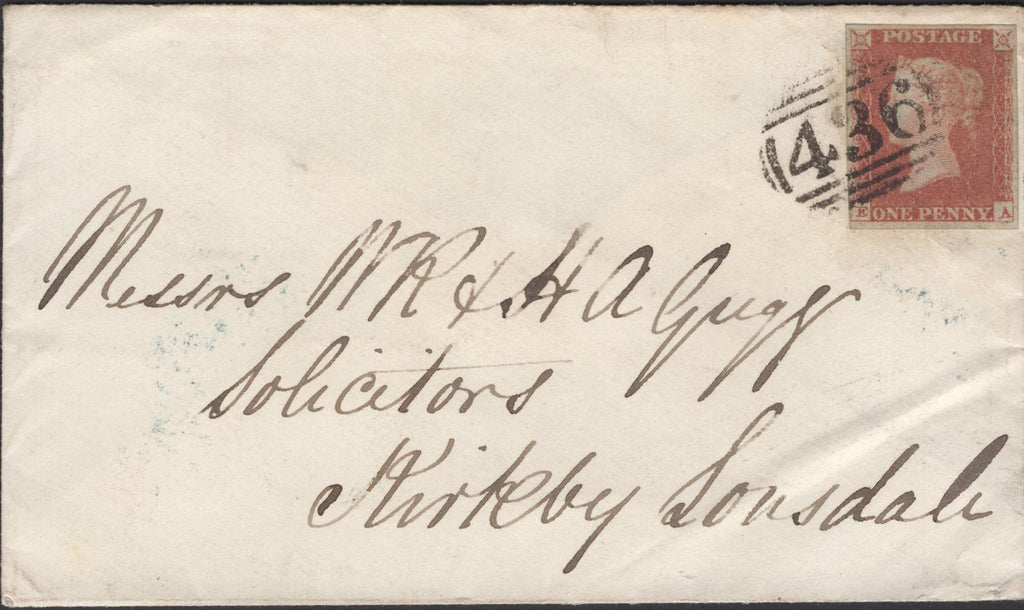 POSTAGE
436
E ONE PENNY A
Messrs W R & H A Gregg
Solicitors
Kirkby Lonsdale